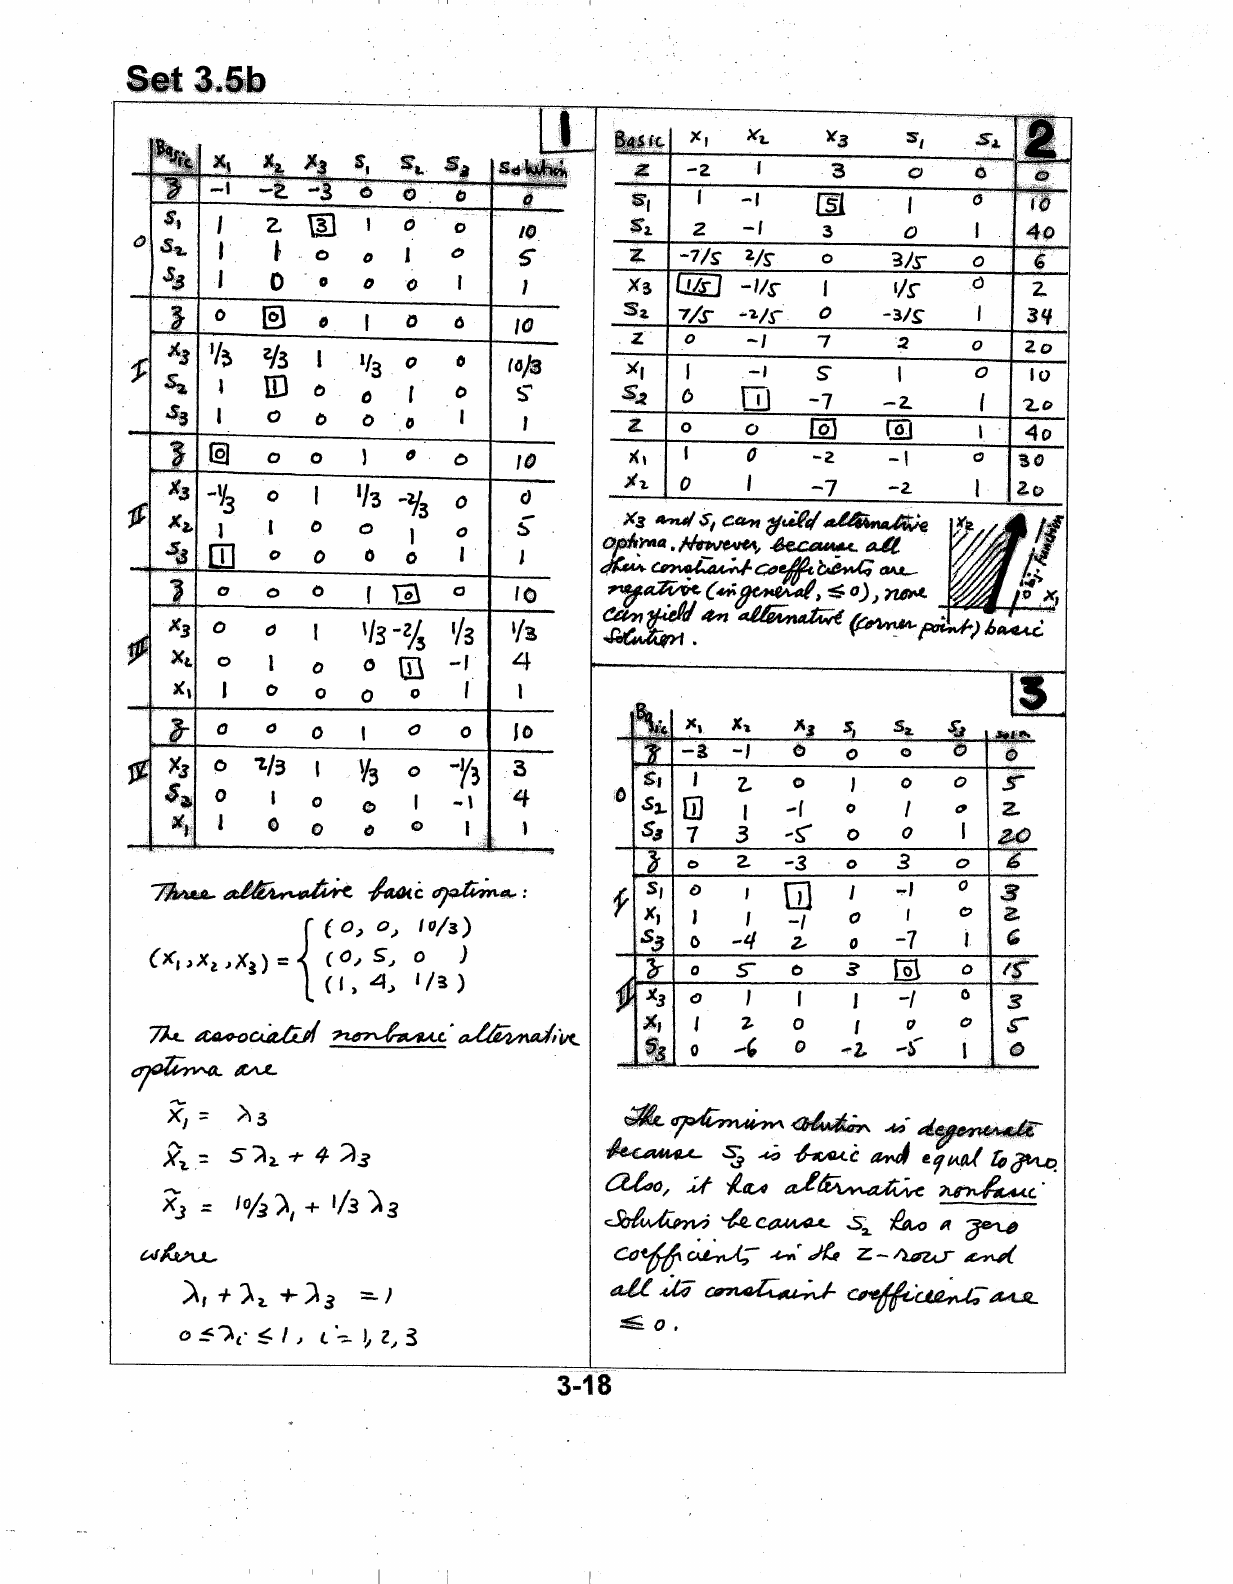 Set 3.5b
1
Basic x₁ x₂ x₃ s₁ s₂ s₃ Solution
z -1 -2 -3 0 0 0 0
0
s₁ 1 2 3 1 0 0 10
s₂ 1 1 0 0 1 0 5
s₃ 1 0 0 0 0 1 1
z 0 0 0 1 0 0 10
I
x₃ 1/3 2/3 1 1/3 0 0 10/3
s₂ 1 1 0 0 1 0 5
s₃ 1 0 0 0 0 1 1
z 0 0 0 1 0 0 10
II
x₃ -1/3 0 1 1/3 -2/3 0 0
x₂ 1 1 0 0 1 0 5
s₃ 1 0 0 0 0 1 1
z 0 0 0 1 0 0 10
III
x₃ 0 0 1 1/3 -2/3 1/3 1/3
x₂ 0 1 0 0 1 -1 4
x₁ 1 0 0 0 0 1 1
z 0 0 0 1 0 0 10
IV
x₃ 0 2/3 1 1/3 0 -1/3 3
s₂ 0 1 0 0 1 -1 4
x₁ 1 0 0 0 0 1 1
Three alternative basic optima:
(x₁, x₂, x₃) = { (0, 0, 10/3)
(0, 5, 0 )
(1, 4, 1/3)
The associated nonbasic alternative
optima are
x̃₁ = λ₃
x̃₂ = 5λ₂ + 4λ₃
x̃₃ = 10/3 λ₁ + 1/3 λ₃
where
λ₁ + λ₂ + λ₃ = 1
0 ≤ λᵢ ≤ 1, i = 1, 2, 3
2
Basic x₁ x₂ x₃ s₁ s₂
z -2 1 3 0 0 0
s₁ 1 -1 5 1 0 10
s₂ 2 -1 3 0 1 40
z -7/5 2/5 0 3/5 0 6
x₃ 1/5 -1/5 1 1/5 0 2
s₂ 7/5 -2/5 0 -3/5 1 34
z 0 -1 7 2 0 20
x₁ 1 -1 5 1 0 10
s₂ 0 1 -7 -2 1 20
z 0 0 0 0 1 40
x₁ 1 0 -2 -1 0 30
x₂ 0 1 -7 -2 1 20
x₃ and s₁ can yield alternative
optima. However, because all
their constraint coefficients are
negative (in general, ≤ 0), none
can yield an alternative (corner point) basic
solution.
x₂
obj. function
x₁
3
Basic x₁ x₂ x₃ s₁ s₂ s₃ Soln
z -3 -1 0 0 0 0 0
0
s₁ 1 2 0 1 0 0 5
s₂ 1 1 -1 0 1 0 2
s₃ 7 3 -5 0 0 1 20
z 0 2 -3 0 3 0 6
I
s₁ 0 1 1 1 -1 0 3
x₁ 1 1 -1 0 1 0 2
s₃ 0 -4 2 0 -7 1 6
z 0 5 0 3 0 0 15
II
x₃ 0 1 1 1 -1 0 3
x₁ 1 2 0 1 0 0 5
s₃ 0 -6 0 -2 -5 1 0
The optimum solution is degenerate
because s₃ is basic and equal to zero.
Also, it has alternative nonbasic
solutions because s₂ has a zero
coefficient in the z-row and
all its constraint coefficients are
≤ 0.
3-18